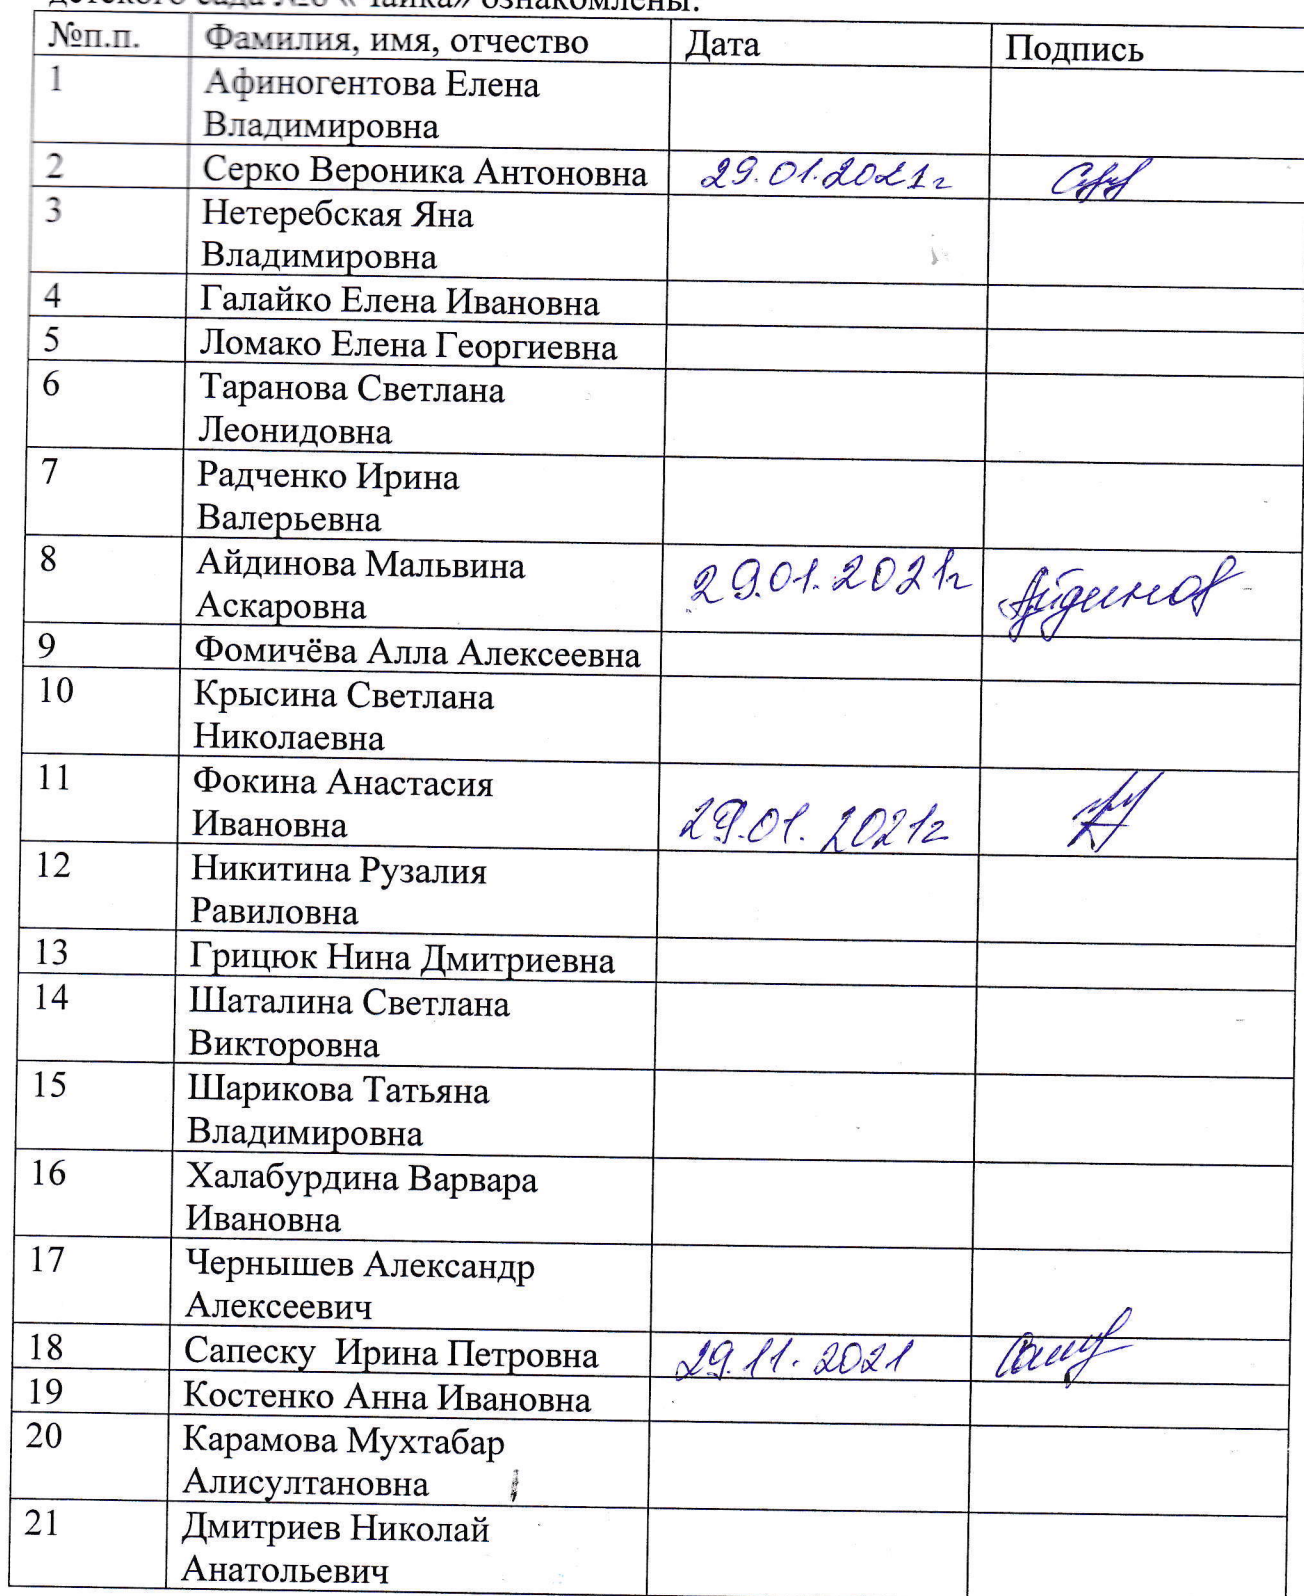 детского сада №8 «Чайка» ознакомлены:
№п.п. Фамилия, имя, отчество Дата Подпись
1 Афиногентова Елена
Владимировна
2 Серко Вероника Антоновна 29.01.2021г
3 Нетеребская Яна
Владимировна
4 Галайко Елена Ивановна
5 Ломако Елена Георгиевна
6 Таранова Светлана
Леонидовна
7 Радченко Ирина
Валерьевна
8 Айдинова Мальвина 29.01.2021г
Аскаровна
9 Фомичёва Алла Алексеевна
10 Крысина Светлана
Николаевна
11 Фокина Анастасия
Ивановна 29.01.2021г
12 Никитина Рузалия
Равиловна
13 Грицюк Нина Дмитриевна
14 Шаталина Светлана
Викторовна
15 Шарикова Татьяна
Владимировна
16 Халабурдина Варвара
Ивановна
17 Чернышев Александр
Алексеевич
18 Сапеску Ирина Петровна 29.11.2021
19 Костенко Анна Ивановна
20 Карамова Мухтабар
Алисултановна
21 Дмитриев Николай
Анатольевич